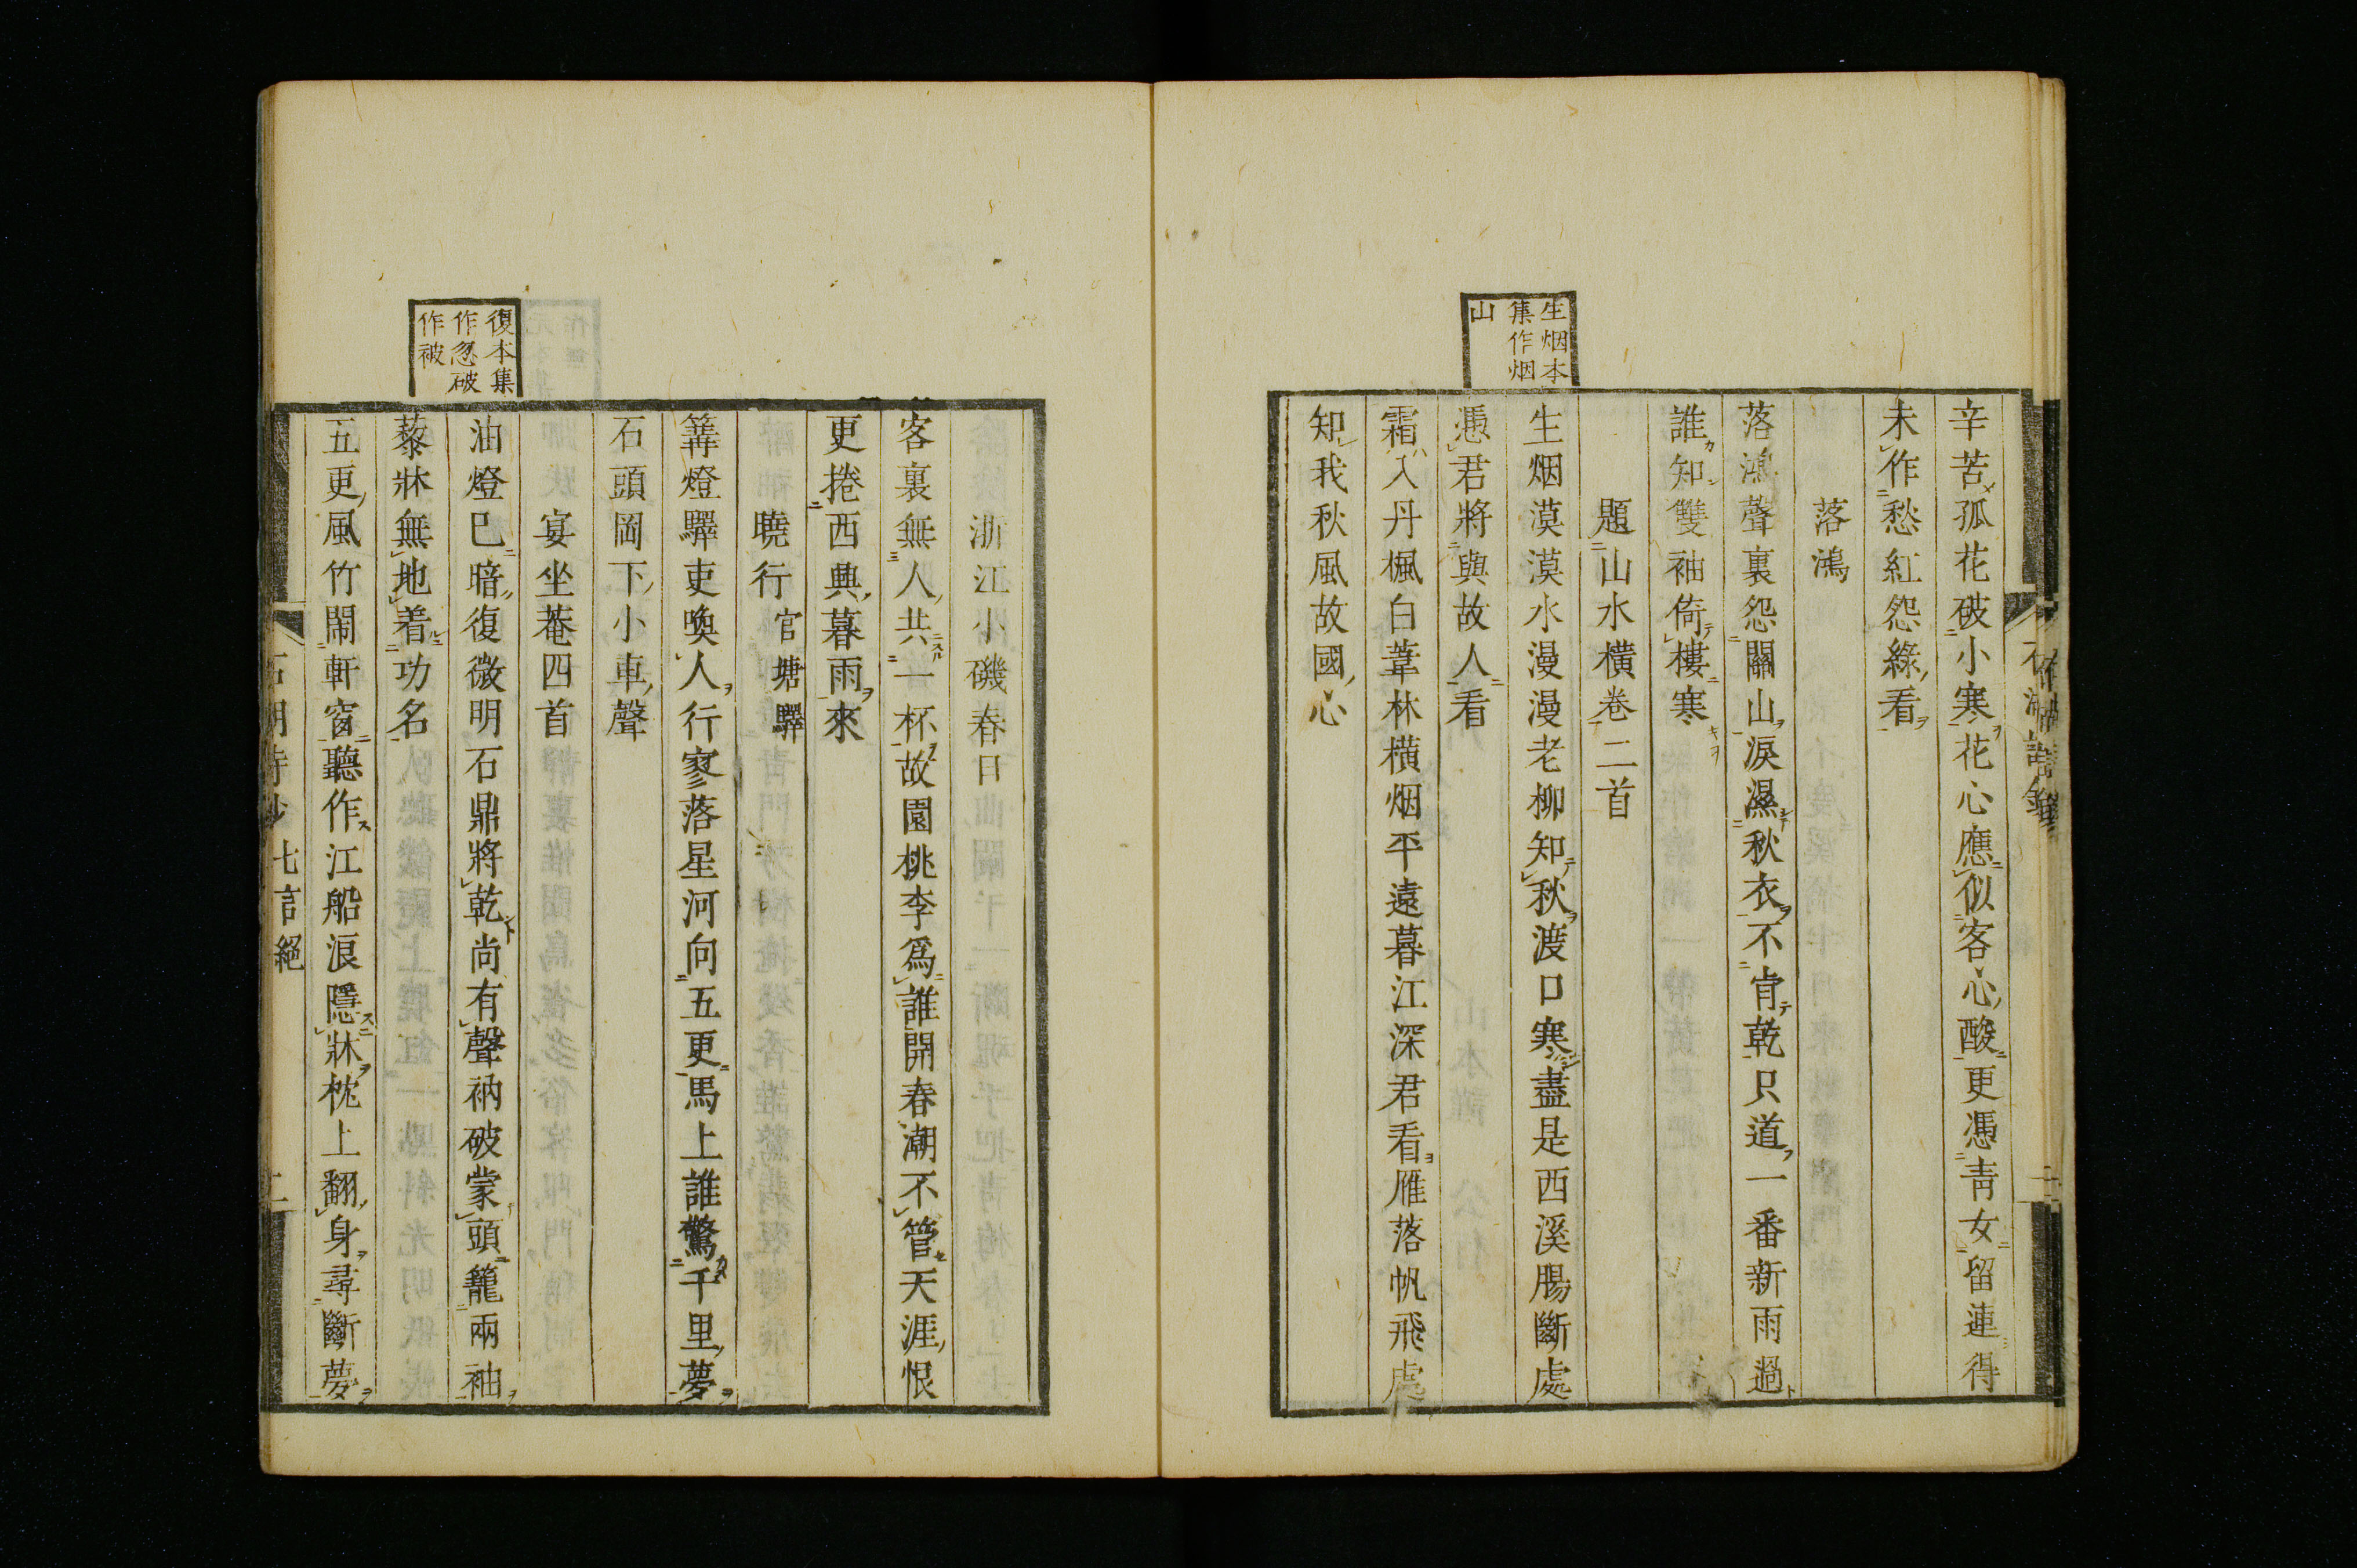 生烟本
集作烟
山
辛苦孤花破小寒花心應似客心酸更憑青女留連得
未作愁紅怨綠看
落鴻
落鴻聲裏怨關山淚濕秋衣不肯乾只道一番新雨過
誰知雙袖倚樓寒
題山水橫卷二首
生烟漠漠水漫漫老柳知秋渡口寒盡是西溪腸斷處
憑君將與故人看
霜入丹楓白葦林橫烟平遠暮江深君看雁落帆飛處
知我秋風故國心
復本集
作忽破
作被
浙江小磯春日
客裏無人共一杯故園桃李爲誰開春潮不管天涯恨
更捲西興暮雨來
曉行官塘驛
篝燈驛吏喚人行寥落星河向五更馬上誰驚千里夢
石頭岡下小車聲
宴坐菴四首
油燈已暗復微明石鼎將乾尚有聲衲破蒙頭籠兩袖
藜牀無地着功名
五更風竹鬧軒窗聽作江船浪隱牀枕上翻身尋斷夢
石湖詩鈔 七言絕 二